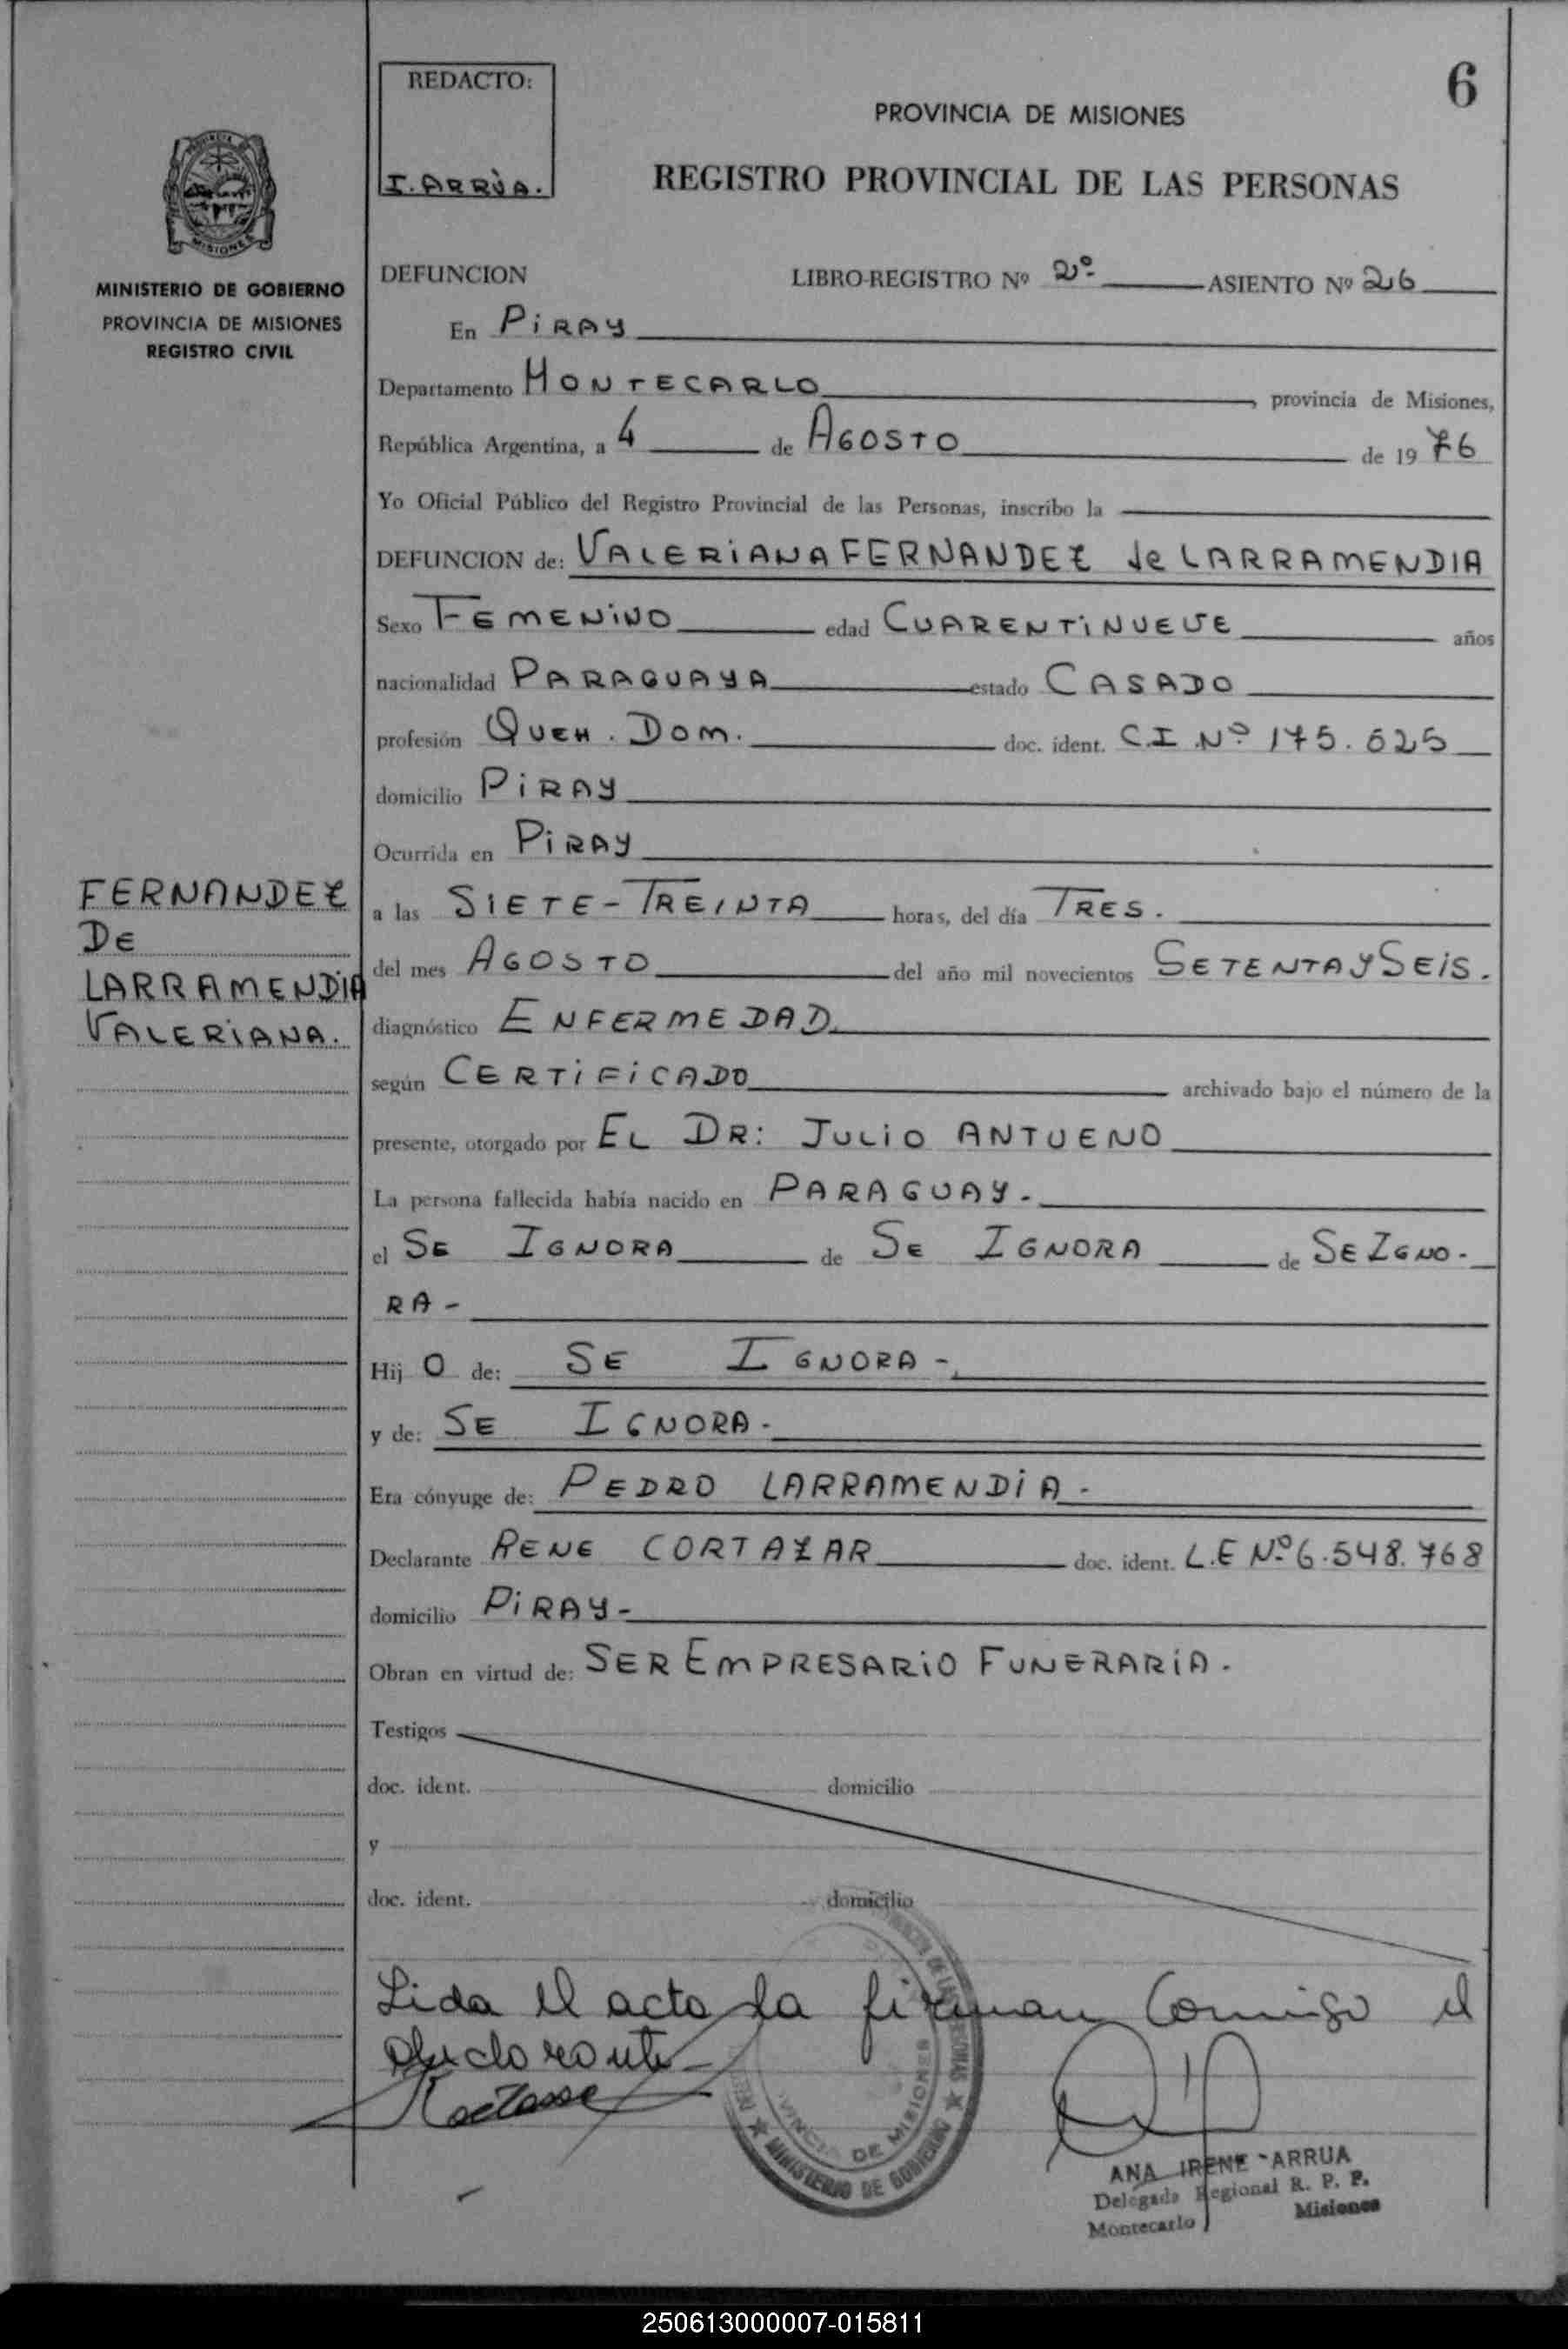 6
REDACTO:
I. ARRÙA.
PROVINCIA DE MISIONES
REGISTRO PROVINCIAL DE LAS PERSONAS
MISIONES
MINISTERIO DE GOBIERNO
PROVINCIA DE MISIONES
REGISTRO CIVIL
DEFUNCION LIBRO-REGISTRO Nº 2º ASIENTO Nº 26
En PiRAY
Departamento MONTECARLO, provincia de Misiones,
República Argentina, a 4 de AGOSTO de 19 76
Yo Oficial Público del Registro Provincial de las Personas, inscribo la
DEFUNCION de: VALERiANA FERNANDEZ de LARRAMENDIA
Sexo FEMENiNO edad CUARENTiNUEVE años
nacionalidad PARAGUAYA estado CASADO
profesión QUEH. DOM. doc. ident. C.I Nº 175.625
domicilio PiRAY
Ocurrida en PiRAY
a las SIETE-TREINTA horas, del día TRES.
del mes AGOSTO del año mil novecientos SETENTA Y SEiS.
diagnóstico ENFERMEDAD.
según CERTiFiCADO archivado bajo el número de la
presente, otorgado por EL DR: JULiO ANTUENO
La persona fallecida había nacido en PARAGUAY.
el SE IGNORA de SE IGNORA de SE IGNO-
RA-
Hij O de: SE IGNORA-
y de: SE IGNORA-
Era cónyuge de: PEDRO LARRAMENDiA-
Declarante RENE CORTAZAR doc. ident. L.E Nº 6.548.768
domicilio PiRAY-
Obran en virtud de: SER EMPRESARiO FUNERARiA.
Testigos
doc. ident. domicilio
y
doc. ident. domicilio
FERNANDEZ
DE
LARRAMENDiA
VALERiANA.
Lida el acta la firman Comigo el
declarante-
VINCIA DE MISIONES
MINISTERIO DE GOBIERNO
ANA IRENE ARRUA
Delegada Regional R. P. P.
Montecarlo Misiones
250613000007-015811